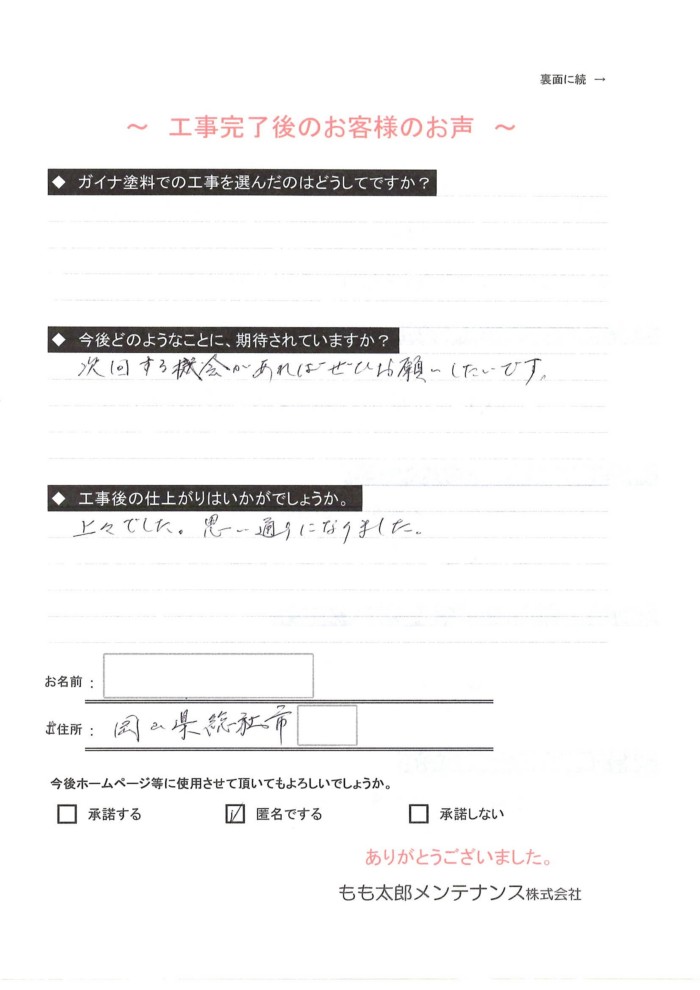 裏面に続 →
～ 工事完了後のお客様のお声 ～
◆ ガイナ塗料での工事を選んだのはどうしてですか?
◆ 今後どのようなことに、期待されていますか?
次回する機会があればぜひお願いしたいです。
◆ 工事後の仕上がりはいかがでしょうか。
上々でした。思い通りになりました。
お名前 :
ご住所 : 岡山県総社市
今後ホームページ等に使用させて頂いてもよろしいでしょうか。
承諾する 匿名でする 承諾しない
ありがとうございました。
もも太郎メンテナンス株式会社